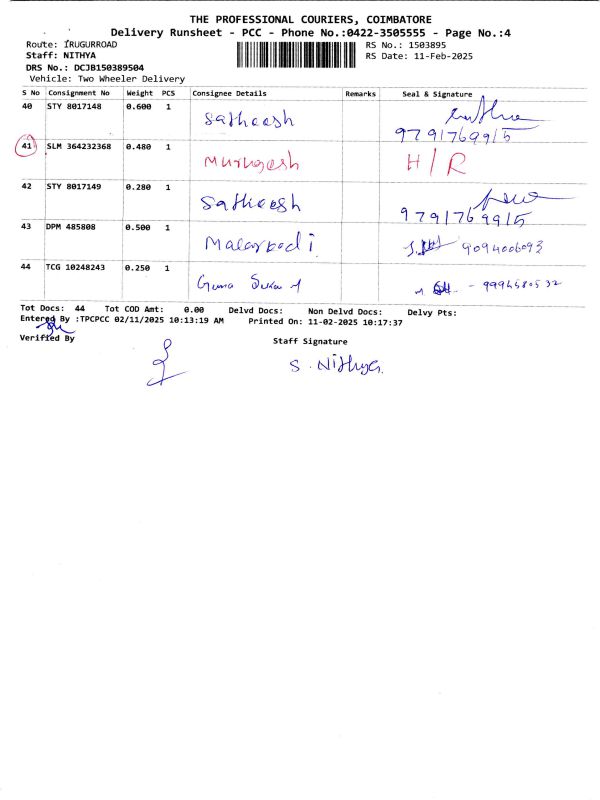 THE PROFESSIONAL COURIERS, COIMBATORE
Delivery Runsheet - PCC - Phone No.:0422-3505555 - Page No.:4
Route: IRUGURROAD
RS No.: 1503895
Staff: NITHYA
RS Date: 11-Feb-2025
DRS No.: DCJB150389504
Vehicle: Two Wheeler Delivery
S No Consignment No Weight PCS Consignee Details Remarks Seal & Signature
40 STY 8017148 0.600 1 Satheesh
9791769915
41 SLM 364232368 0.480 1 Murugesh H/R
42 STY 8017149 0.280 1 Satheesh
9791769915
43 DPM 485808 0.500 1 Malarkodi 9094006093
44 TCG 10248243 0.250 1 Guna
Tot Docs: 44 Tot COD Amt: 0.00 Delvd Docs: Non Delvd Docs: Delvy Pts:
Entered By :TPCPCC 02/11/2025 10:13:19 AM Printed On: 11-02-2025 10:17:37
Verified By Staff Signature
S. Nithya